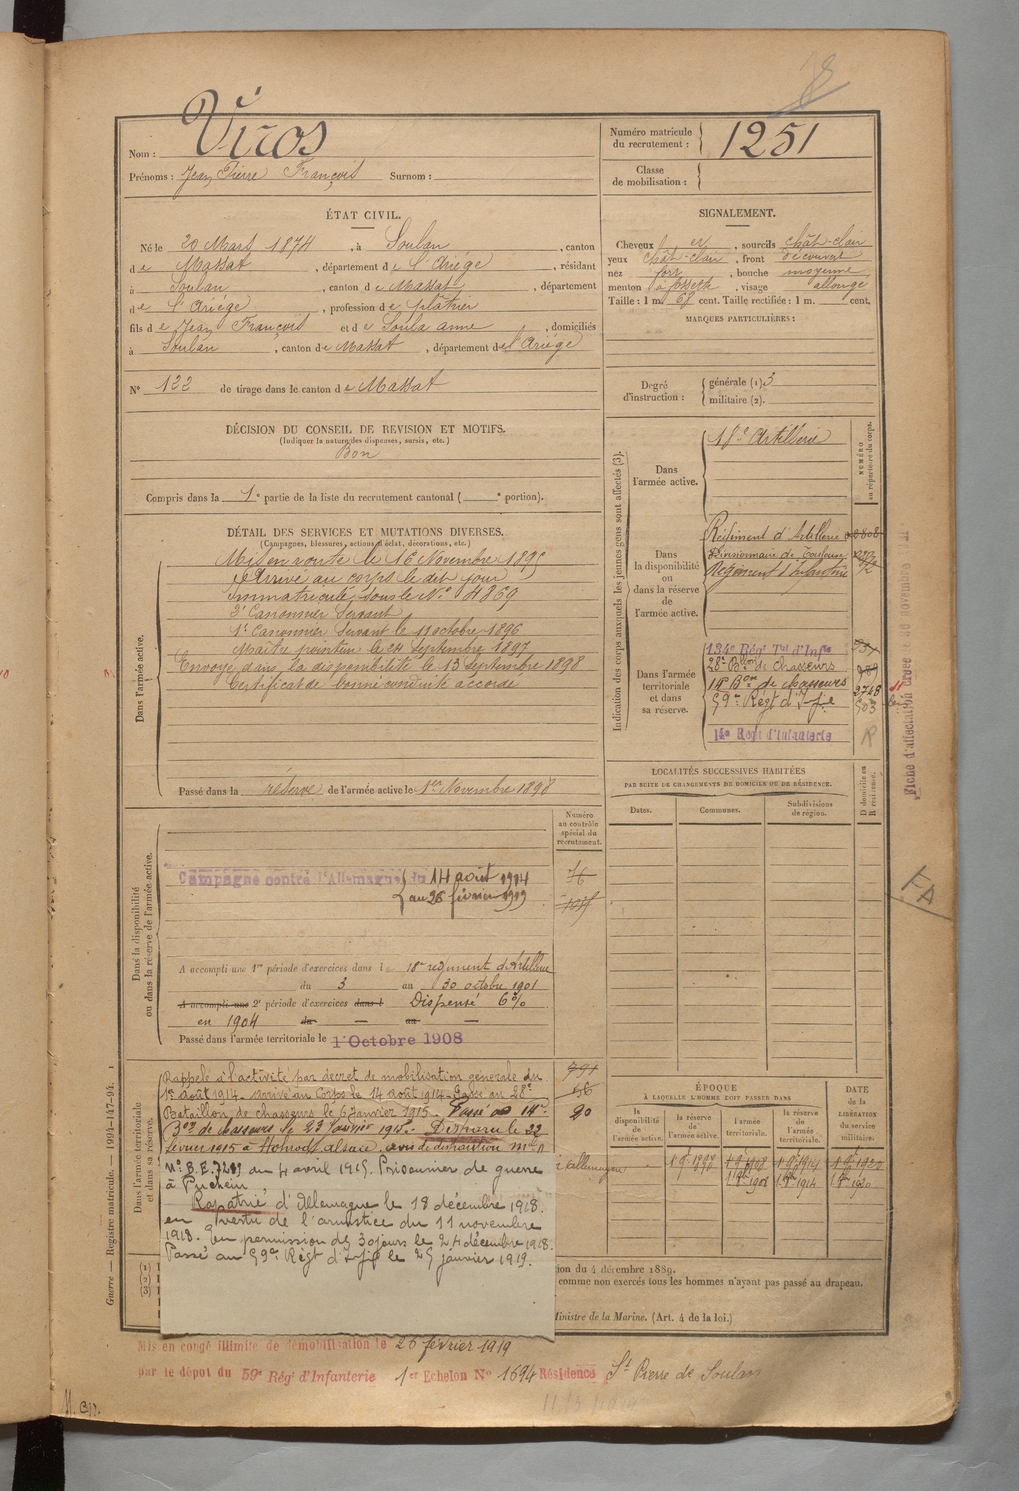 Nom : Viros
Prénoms : Jean Pierre François Surnom :
Numéro matricule du recrutement : 1251
Classe de mobilisation :
ÉTAT CIVIL.
Né le 20 Mars 1874, à Soulan, canton
de Massat, département de l'Ariége, résidant
à Soulan, canton de Massat, département
de l'Ariége, profession de plâtrier
fils de Jean François et de Soula anne, domiciliés
à Soulan, canton de Massat, département de l'Ariége
N° 122 de tirage dans le canton de Massat
SIGNALEMENT.
Cheveux, sourcils chât-clair
yeux chât-clair, front découvert
nez fort, bouche moyenne
menton à fossette, visage allongé
Taille : 1 m. cent. Taille rectifiée : 1 m. cent.
MARQUES PARTICULIÈRES :
Degré d'instruction : générale (1) 3
militaire (2).
DÉCISION DU CONSEIL DE REVISION ET MOTIFS.
(Indiquer la nature des dispenses, sursis, etc.)
Bon
Compris dans la 1e partie de la liste du recrutement cantonal ( e portion).
DÉTAIL DES SERVICES ET MUTATIONS DIVERSES.
(Campagnes, blessures, actions d'éclat, décorations, etc.)
Dans l'armée active.
Mis en route le 16 Novembre 1895
Arrivé au corps le dit jour
Immatriculé sous le N° 4869
2e Canonnier Servant
1er Canonnier Servant le 11 octobre 1896
Maitre pointeur le 24 septembre 1897
Envoyé dans la disponibilité le 13 septembre 1898
Certificat de bonne conduite accordé
Passé dans la réserve de l'armée active le 1er Novembre 1898
Indication des corps auxquels les jeunes gens sont affectés (3).
NUMÉRO au répertoire du corps.
Dans l'armée active.
18e Artillerie
Dans la disponibilité ou dans la réserve de l'armée active.
Régiment d'Artillerie
Divisionnaire de Toulouse
Régiment d'Infanterie
Dans l'armée territoriale et dans sa réserve.
134e Régt Tal d'Infie
28e Bon de Chasseurs
14e Bon de chasseurs 2748
59e Régt d'Infie 503
14e Régt d'Infanterie
Fiche d'affectation créée le 26 novembre
LOCALITÉS SUCCESSIVES HABITÉES
PAR SUITE DE CHANGEMENTS DE DOMICILE OU DE RÉSIDENCE.
Dates. Communes. Subdivisions de région. D domicile ou R résidence.
Dans la disponibilité ou dans la réserve de l'armée active.
Numéro au contrôle spécial du recrutement.
Campagne contre l'Allemagne du 14 août 1914
au 26 février 1919
A accompli une 1re période d'exercices dans le 18e régiment d'Artillerie
du 3 au 30 octobre 1901
A accompli une 2e période d'exercices dans l Dispensé 6%
en 1904 du — au —
Passé dans l'armée territoriale le 1 Octobre 1908
FA
Dans l'armée territoriale et dans sa réserve.
Rappelé à l'activité par décret de mobilisation générale du
1er août 1914. Arrivé au Corps le 14 août 1914. Passé au 28e
Bataillon de chasseurs le 6 janvier 1915. Passé au 14e
Bon de chasseurs le 23 janvier 1915. Disparu le 22
février 1915 à alsace avis de disparition
N° B.E.7289 au 4 avril 1915. Prisonnier de guerre
à Puchein
Rapatrié d'Allemagne le 18 décembre 1918.
en vertu de l'armistice du 11 novembre
1918. En permission de 30 jours le 24 décembre 1918.
Passé au 59e Régt d'Infie le 25 janvier 1919.
20
ÉPOQUE
À LAQUELLE L'HOMME DOIT PASSER DANS
la disponibilité de l'armée active. la réserve de l'armée active. l'armée territoriale. la réserve de l'armée territoriale.
DATE de la LIBÉRATION du service militaire.
ion du 4 décembre 1889.
comme non exercés tous les hommes n'ayant pas passé au drapeau.
Ministre de la Marine. (Art. 4 de la loi.)
Guerre — Registre matricule. — 1994-147-94.
Mis en congé illimité de démobilisation le 26 février 1919
par le dépot du 59e Régt d'Infanterie 1er Echelon N° 1694 Résidence St Pierre de Soulan